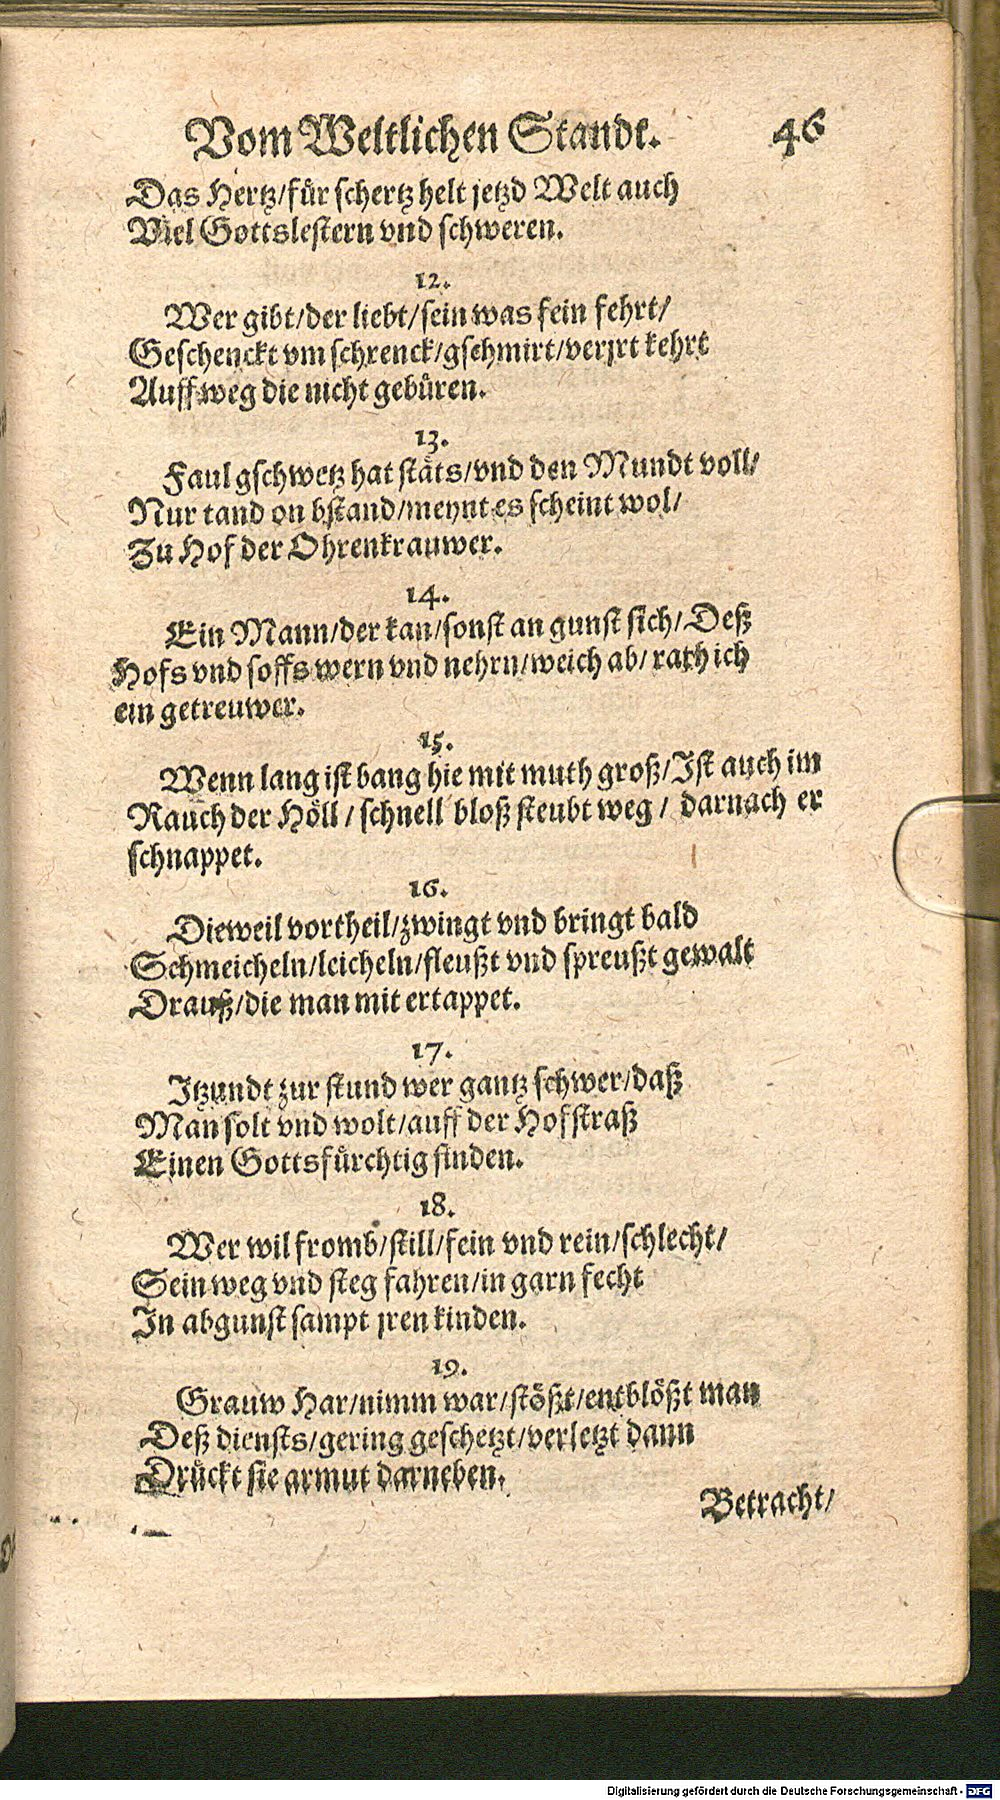 Vom Weltlichen Standt. 46
Das Hertz/für schertz helt jetzd Welt auch
Viel Gottslestern vnd schweren.
12.
Wer gibt/der liebt/sein was fein fehrt/
Geschenckt vm schrenck/gschmirt/verjrt kehrt
Auff weg die nicht gebüren.
13.
Faul gschwetz hat stäts/vnd den Mundt voll/
Nur tand on bstand/meynt es scheint wol/
Zu Hof der Ohrenkrauwer.
14.
Ein Mann/der kan/sonst an gunst sich/Deß
Hofs vnd soffs wern vnd nehrn/weich ab/rath ich
ein getreuwer.
15.
Wenn lang ist bang hie mit muth groß/Ist auch im
Rauch der Höll/schnell bloß steubt weg/darnach er
schnappet.
16.
Dieweil vortheil/zwingt vnd bringt bald
Schmeicheln/leicheln/fleußt vnd spreußt gewalt
Drauß/die man mit ertappet.
17.
Itzundt zur stund wer gantz schwer/daß
Man solt vnd wolt/auff der Hofstraß
Einen Gottsfürchtig finden.
18.
Wer wil fromb/still/fein vnd rein/schlecht/
Sein weg vnd steg fahren/in garn fecht
In abgunst sampt jren kinden.
19.
Grauw Har/nimm war/stößt/entblößt man
Deß diensts/gering geschetzt/verletzt dann
Drückt sie armut darneben.
Betracht/
Digitalisierung gefördert durch die Deutsche Forschungsgemeinschaft - DFG